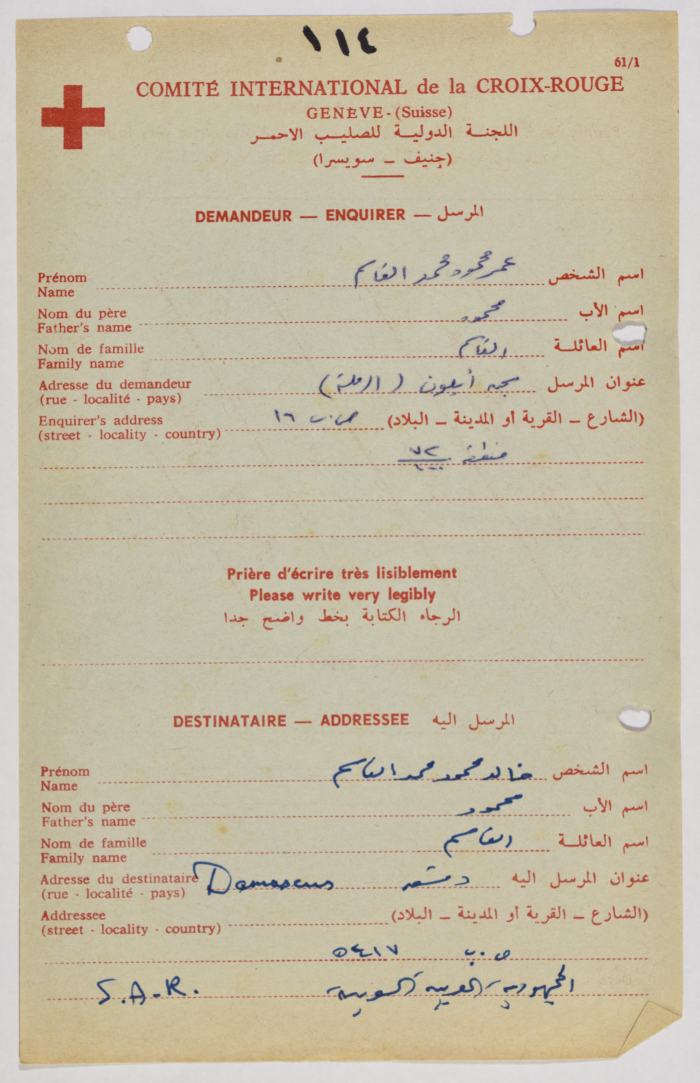 ١١٤
61/1
COMITÉ INTERNATIONAL de la CROIX-ROUGE
GENÈVE - (Suisse)
اللجنة الدولية للصليب الاحمر
(جنيف ـ سويسرا)
DEMANDEUR — ENQUIRER — المرسل
Prénom
Name
عمر محمود محمد القاسم
اسم الشخص
Nom du père
Father's name
محمود
اسم الأب
Nom de famille
Family name
القاسم
اسم العائلة
Adresse du demandeur
(rue - localité - pays)
سجن أيلون (الرملة)
عنوان المرسل
Enquirer's address
(street - locality - country)
ص.ب ١٦
(الشارع ـ القرية أو المدينة ـ البلاد)
منطقة ٧٢/١٠٠
Prière d'écrire très lisiblement
Please write very legibly
الرجاء الكتابة بخط واضح جدا
DESTINATAIRE — ADDRESSEE المرسل اليه
Prénom
Name
خالد محمود محمد القاسم
اسم الشخص
Nom du père
Father's name
محمود
اسم الأب
Nom de famille
Family name
القاسم
اسم العائلة
Adresse du destinataire
(rue - localité - pays)
Damascus دمشق
عنوان المرسل اليه
Addressee
(street - locality - country)
(الشارع ـ القرية أو المدينة ـ البلاد)
ص.ب ٥٤١٧
S.A.R. الجمهورية العربية السورية